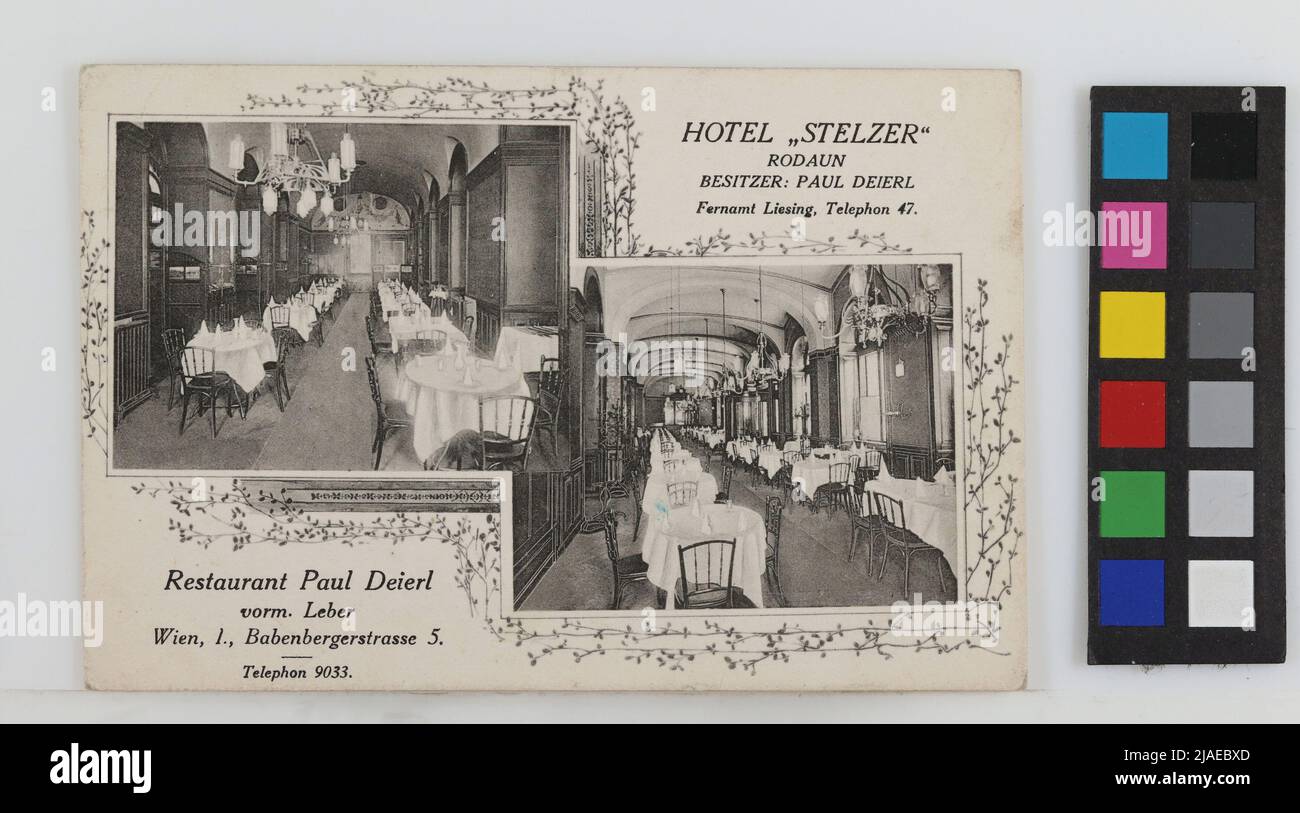 HOTEL „STELZER“
RODAUN
BESITZER: PAUL DEIERL
Fernamt Liesing, Telephon 47.
Restaurant Paul Deierl
vorm. Leber
Wien, 1., Babenbergerstrasse 5.
Telephon 9033.
alamy
alamy
Image ID: 2JAEBXD
www.alamy.com